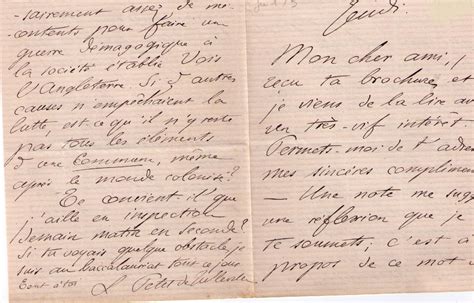 -sairement assez de mé-
contents pour faire une
guerre démagogique à
la société établie. Vois
l'Angleterre. Si d'autres
causes n'empêchaient la
lutte, est-ce qu'il n'y reste
pas tous les éléments
d'une Commune, même
après le monde colonisé ?
Te convient-il que
j'aille en inspection
demain matin en seconde ?
Si tu voyais quelque obstacle, je
suis au baccalauréat tout ce jour
Tout à toi L. Petit de Julleville
Jeudi.
Mon cher ami,
reçu ta brochure, et
je viens de la lire av
un très-vif intérêt.
Permets-moi de t'adres
mes sincères complimen
— Une note me sug
une réflexion que je
te soumets ; c'est à
propos de ce mot